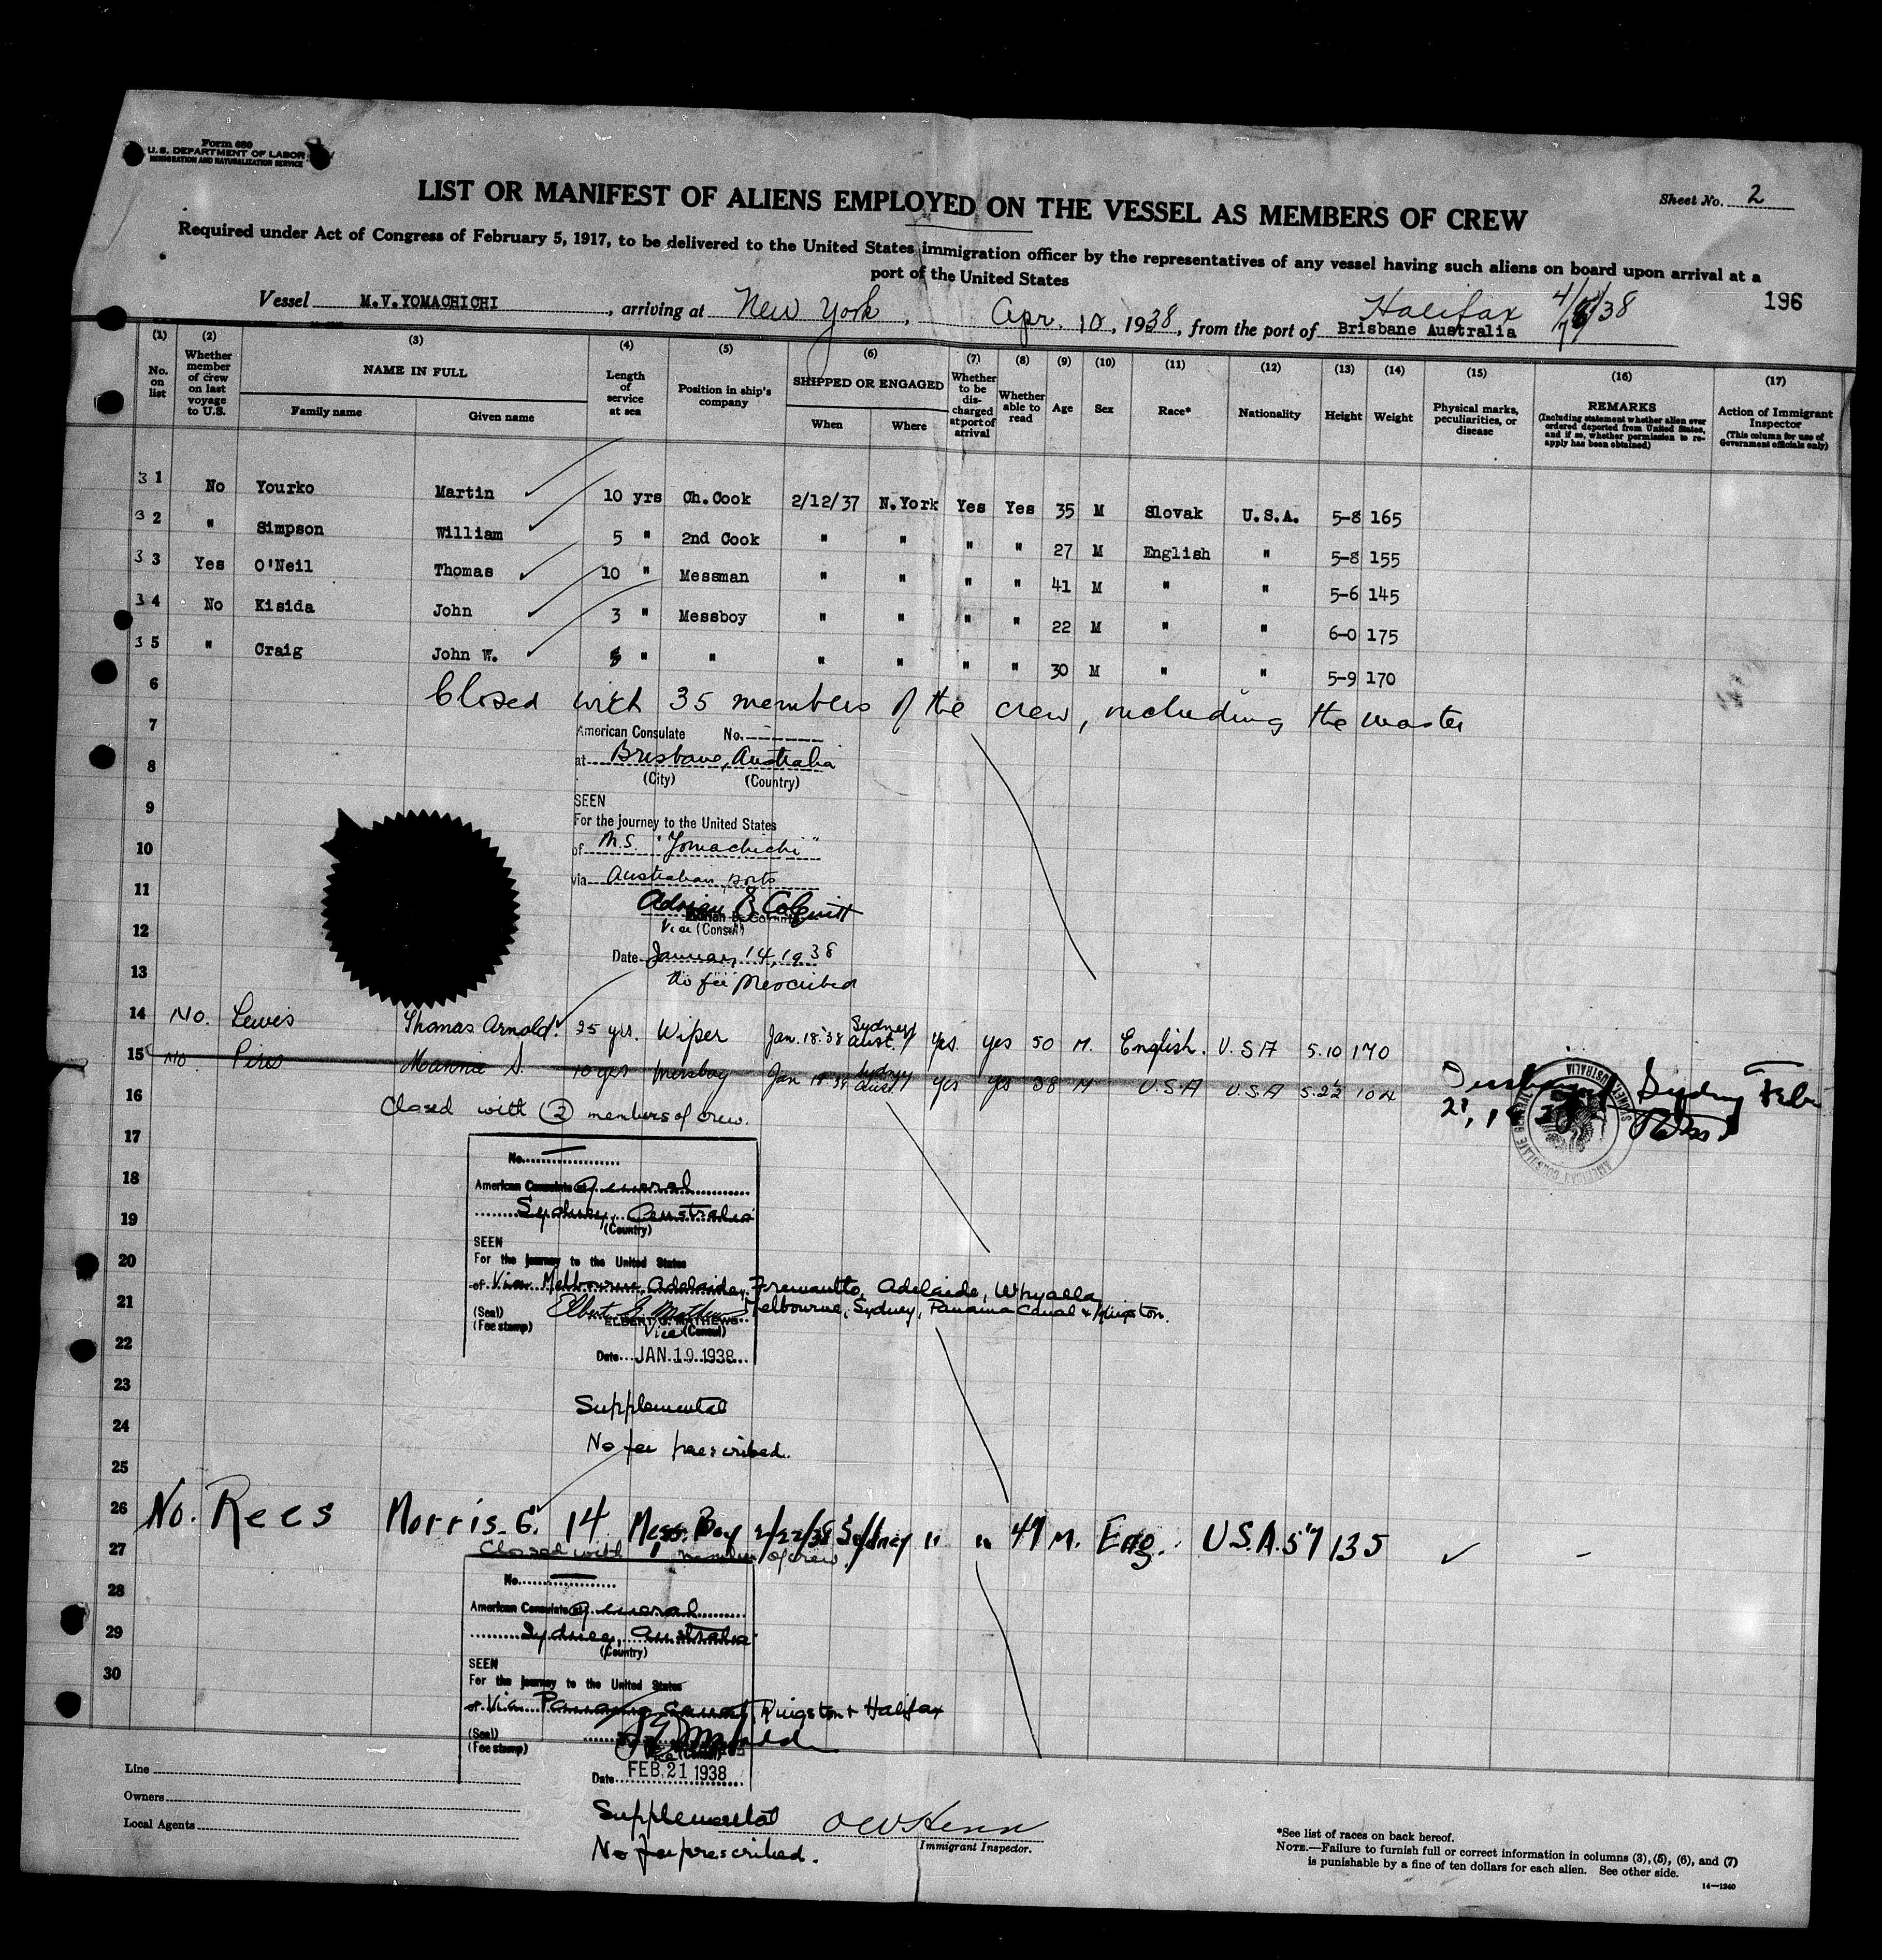 Form 680
U. S. DEPARTMENT OF LABOR
IMMIGRATION AND NATURALIZATION SERVICE
LIST OR MANIFEST OF ALIENS EMPLOYED ON THE VESSEL AS MEMBERS OF CREW
Sheet No. 2
Required under Act of Congress of February 5, 1917, to be delivered to the United States immigration officer by the representatives of any vessel having such aliens on board upon arrival at a
port of the United States
Halifax 4/8/38
196
Vessel M.V.YOMACHICHI, arriving at New York, Apr. 10, 1938, from the port of Brisbane Australia
(1) (2) (3) (4) (5) (6) (7) (8) (9) (10) (11) (12) (13) (14) (15) (16) (17)
No. on list
Whether member of crew on last voyage to U.S.
NAME IN FULL
Family name
Given name
Length of service at sea
Position in ship's company
SHIPPED OR ENGAGED
When
Where
Whether to be discharged at port of arrival
Whether able to read
Age
Sex
Race*
Nationality
Height
Weight
Physical marks, peculiarities, or disease
REMARKS
(Including statement whether alien ever ordered deported from United States, and if so, whether permission to reapply has been obtained)
Action of Immigrant Inspector
(This column for use of Government officials only)
31 No Yourko Martin 10 yrs Ch.Cook 2/12/37 N.York Yes Yes 35 M Slovak U.S.A. 5-8 165
32 " Simpson William 5 " 2nd Cook " " " " 27 M English " 5-8 155
33 Yes O'Neil Thomas 10 " Messman " " " " 41 M " " 5-6 145
34 No Kisida John 3 " Messboy " " " " 22 M " " 6-0 175
35 " Craig John W. " " " " " " 30 M " " 5-9 170
6 Closed with 35 members of the crew, including the master
7 American Consulate No.
8 at Brisbane, Australia
(City) (Country)
9 SEEN
For the journey to the United States
10 of M.S. "Yomachichi"
11 via Australian ports
12 Vice (Consul)
Date January 14, 1938
13 No fee prescribed
14 No. Lewis Thomas Arnold. 25 yrs. Wiper Jan. 18. 38 Sydney Aust. yes. yes 50 M. English. U.S.A 5.10 170
15 No. Pires Mannie S. 10 yrs Messboy Jan 18 38 Sydney Aust. yes yes 38 M U.S.A U.S.A 5.2½ 104
Sydney Feb
21, 1938
AMERICAN CONSULATE GENERAL SYDNEY, AUSTRALIA
16 Closed with 2 members of crew.
17 No.
18 American Consulate General
19 Sydney, Australia
(Country)
SEEN
20 For the journey to the United States
of Via Melbourne, Adelaide, Fremantle, Adelaide, Whyalla,
21 Melbourne, Sydney, Panama Canal & Kingston.
(Seal) Elbert G. Mathews
(Fee stamp) ELBERT G. MATHEWS
22 Vice (Consul)
Date JAN. 19. 1938
23
Supplemental
24
No fee prescribed.
25
26 No. Rees Morris G. 14 Mess Boy 2/22/38 Sydney " " 47 M. Eng. U.S.A. 5'7 135
27 Closed with 1 member of crew.
No.
28 American Consulate General
29 Sydney, Australia
(Country)
SEEN
30 For the journey to the United States
of Via Panama Canal, Kingston & Halifax
(Seal)
(Fee stamp)
Vice (Consul)
Date FEB. 21 1938
Line
Owners
Local Agents
Supplemental
No fee prescribed.
Immigrant Inspector.
*See list of races on back hereof.
NOTE.—Failure to furnish full or correct information in columns (3), (5), (6), and (7)
is punishable by a fine of ten dollars for each alien. See other side.
14—1240